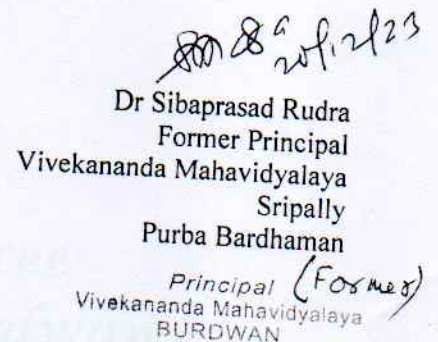 20/12/23
Dr Sibaprasad Rudra
Former Principal
Vivekananda Mahavidyalaya
Sripally
Purba Bardhaman
Principal (Former)
Vivekananda Mahavidyalaya
BURDWAN